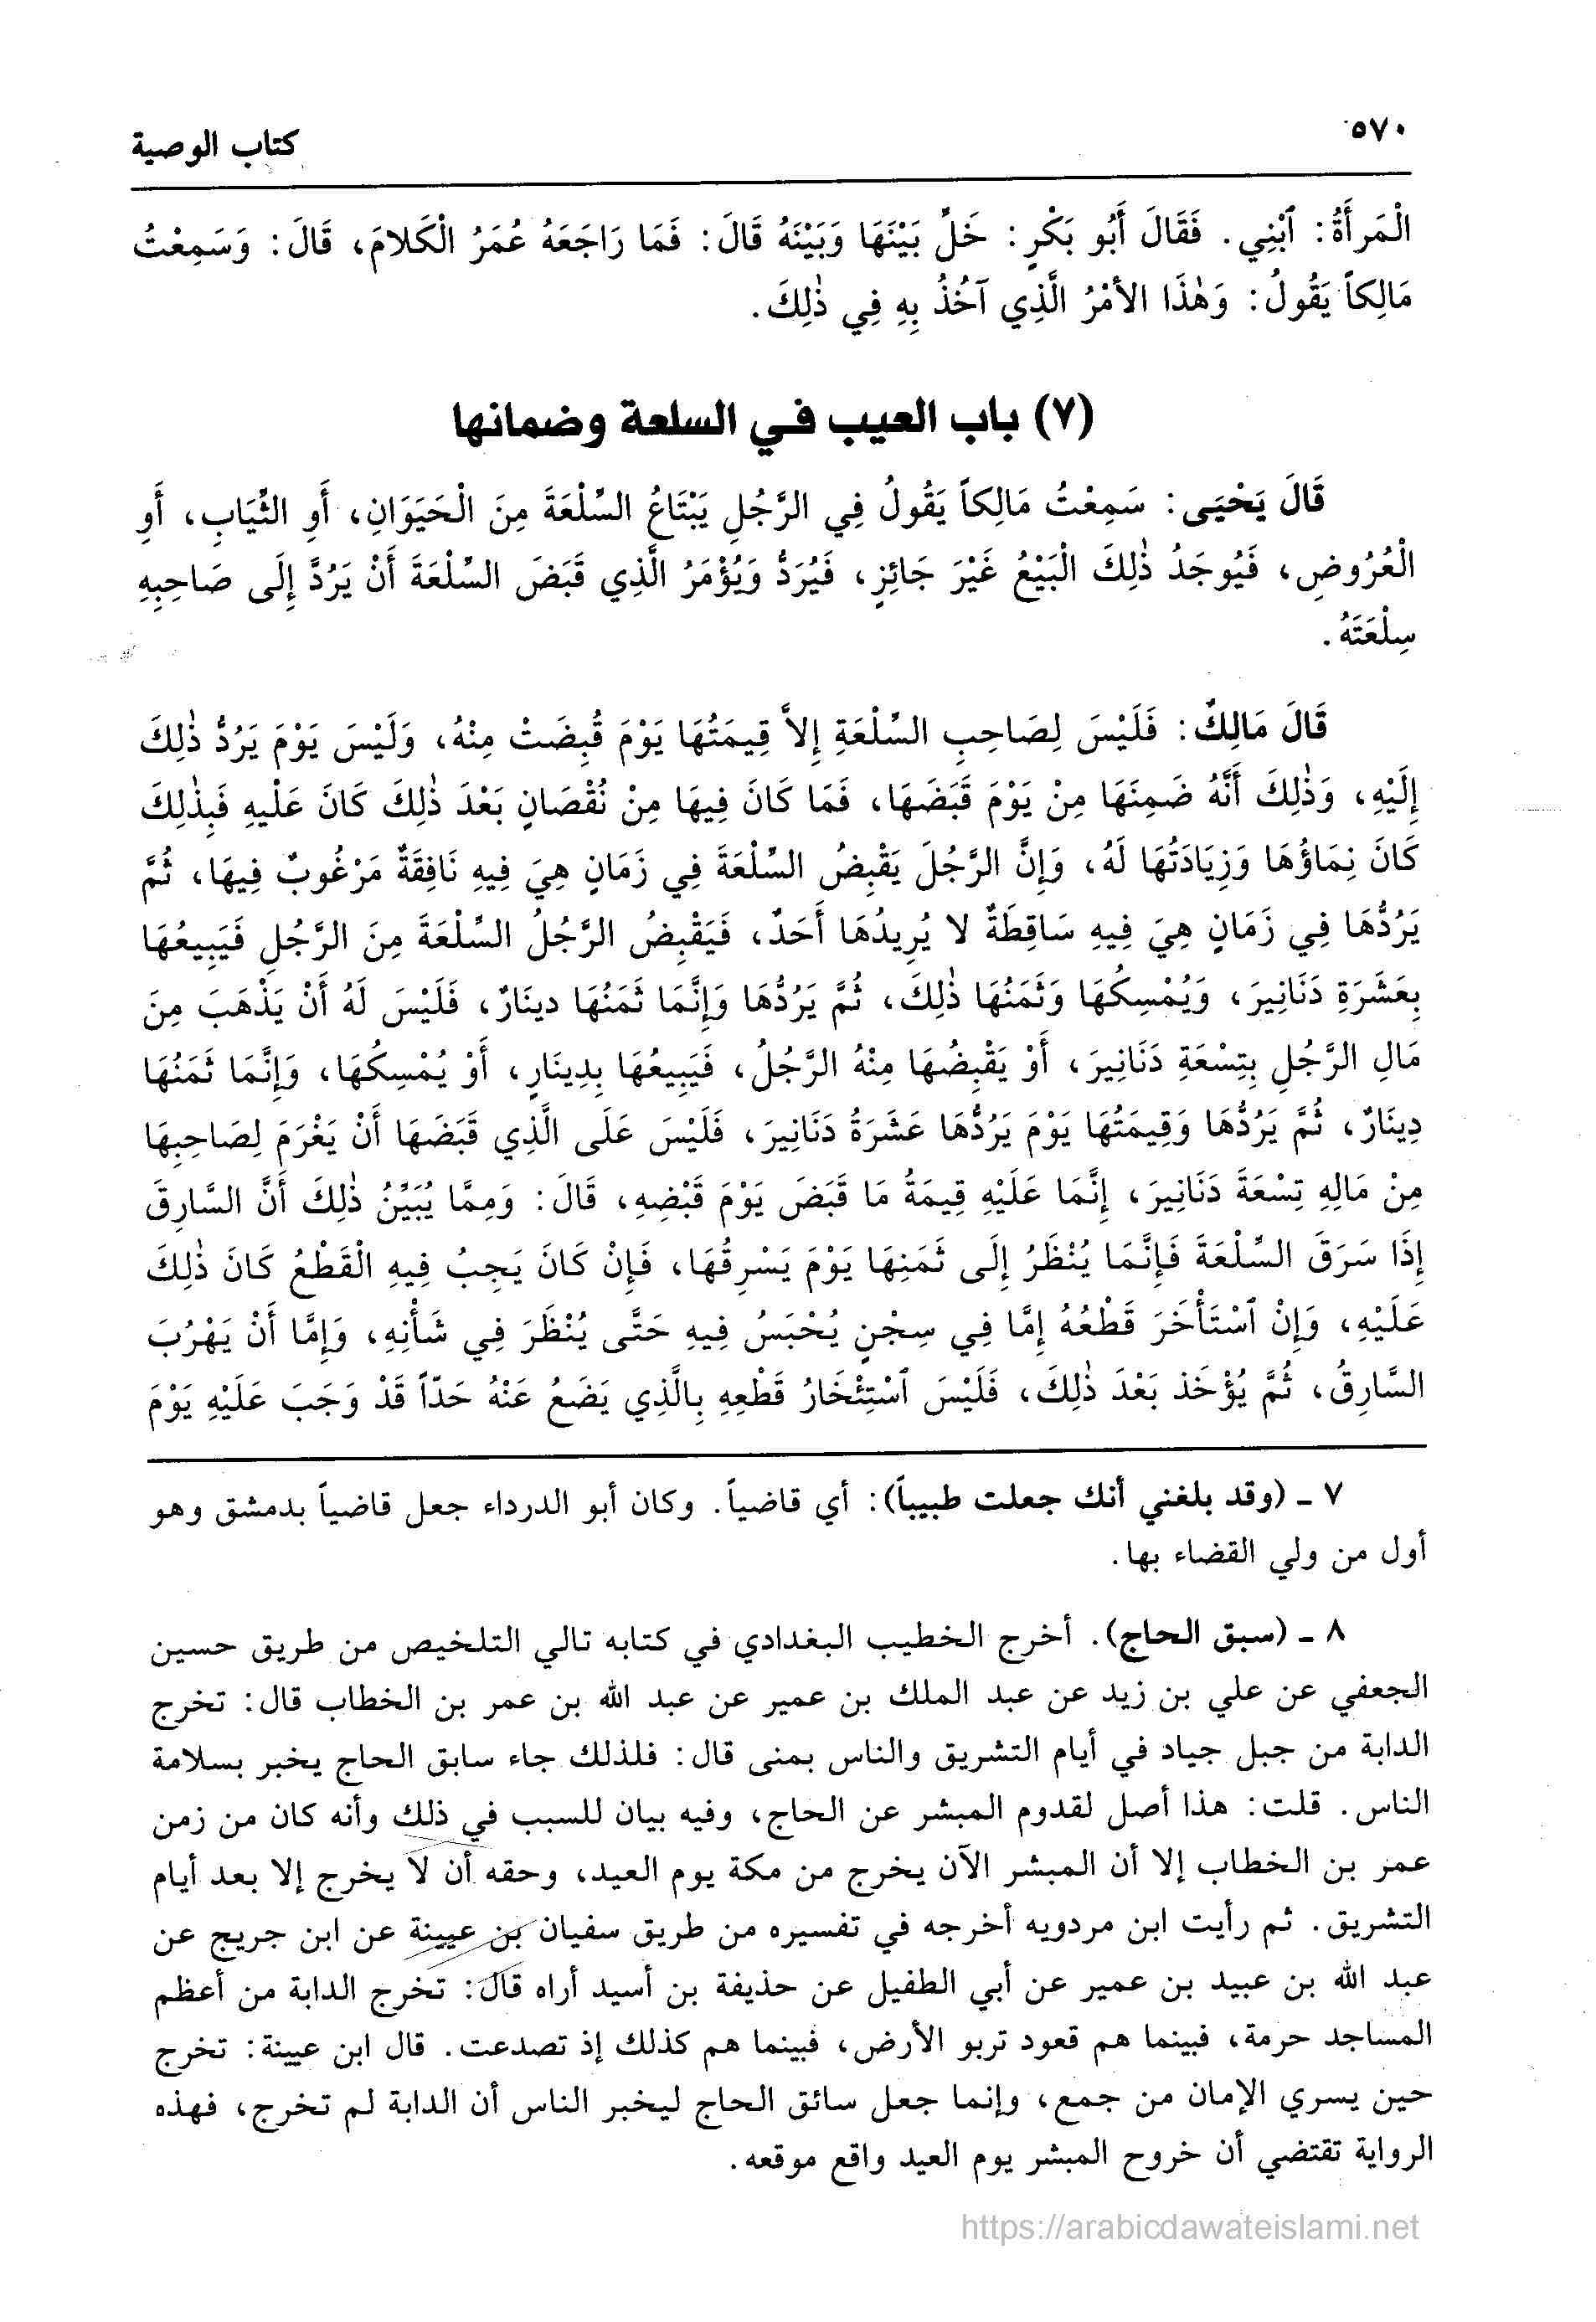 ٥٧٠
كتاب الوصية
الْمَرأَةُ: ٱبْنِي. فَقَالَ أَبُو بَكْرٍ: خَلِّ بَيْنَهَا وَبَيْنَهُ قَالَ: فَمَا رَاجَعَهُ عُمَرُ الْكَلامَ، قَالَ: وَسَمِعْتُ
مَالِكاً يَقُولُ: وَهٰذَا الأَمْرُ الَّذِي آخُذُ بِهِ فِي ذٰلِكَ.
(٧) باب العيب في السلعة وضمانها
قَالَ يَحْيَى: سَمِعْتُ مَالِكاً يَقُولُ فِي الرَّجُلِ يَبْتَاعُ السِّلْعَةَ مِنَ الْحَيَوَانِ، أَوِ الثِّيَابِ، أَوِ
الْعُرُوضِ، فَيُوجَدُ ذٰلِكَ الْبَيْعُ غَيْرَ جَائِزٍ، فَيُرَدُّ وَيُؤْمَرُ الَّذِي قَبَضَ السِّلْعَةَ أَنْ يَرُدَّ إِلَى صَاحِبِهِ
سِلْعَتَهُ.
قَالَ مَالِكٌ: فَلَيْسَ لِصَاحِبِ السِّلْعَةِ إِلاَّ قِيمَتُهَا يَوْمَ قُبِضَتْ مِنْهُ، وَلَيْسَ يَوْمَ يَرُدُّ ذٰلِكَ
إِلَيْهِ، وَذٰلِكَ أَنَّهُ ضَمِنَهَا مِنْ يَوْمَ قَبَضَهَا، فَمَا كَانَ فِيهَا مِنْ نُقْصَانٍ بَعْدَ ذٰلِكَ كَانَ عَلْيهِ فَبِذٰلِكَ
كَانَ نِمَاؤُهَا وَزِيَادَتُهَا لَهُ، وَإِنَّ الرَّجُلَ يَقْبِضُ السِّلْعَةَ فِي زَمَانٍ هِيَ فِيهِ نَافِقَةٌ مَرْغُوبٌ فِيهَا، ثُمَّ
يَرُدُّهَا فِي زَمَانٍ هِيَ فِيهِ سَاقِطَةٌ لا يُرِيدُهَا أَحَدٌ، فَيَقْبِضُ الرَّجُلُ السِّلْعَةَ مِنَ الرَّجُلِ فَيَبِيعُهَا
بِعَشَرَةِ دَنَانِيرَ، وَيُمْسِكُهَا وَثَمَنُهَا ذٰلِكَ، ثُمَّ يَرُدُّهَا وَإِنَّمَا ثَمَنُهَا دينَارٌ، فَلَيْسَ لَهُ أَنْ يَذْهَبَ مِنَ
مَالِ الرَّجُلِ بِتِسْعَةِ دَنَانِيرَ، أَوْ يَقْبِضُهَا مِنْهُ الرَّجُلُ، فَيَبِيعُهَا بِدِينَارٍ، أَوْ يُمْسِكُهَا، وَإِنَّمَا ثَمَنُهَا
دِينَارٌ، ثُمَّ يَرُدُّهَا وَقِيمَتُهَا يَوْمَ يَرُدُّهَا عَشَرَةُ دَنَانِيرَ، فَلَيْسَ عَلَى الَّذِي قَبَضَهَا أَنْ يَغْرَمَ لِصَاحِبِهَا
مِنْ مَالِهِ تِسْعَةَ دَنَانِيرَ، إِنَّمَا عَلَيْهِ قِيمَةُ مَا قَبَضَ يَوْمَ قَبْضِهِ، قَالَ: وَمِمَّا يُبَيِّنُ ذٰلِكَ أَنَّ السَّارِقَ
إِذَا سَرَقَ السِّلْعَةَ فَإِنَّمَا يُنْظَرُ إِلَى ثَمَنِهَا يَوْمَ يَسْرِقُهَا، فَإِنْ كَانَ يَجِبُ فِيهِ الْقَطْعُ كَانَ ذٰلِكَ
عَلَيْهِ، وَإِنْ ٱسْتَأْخَرَ قَطْعُهُ إِمَّا فِي سِجْنٍ يُحْبَسُ فِيهِ حَتَّى يُنْظَرَ فِي شَأْنِهِ، وَإِمَّا أَنْ يَهْرُبَ
السَّارِقُ، ثُمَّ يُؤْخَذ بَعْدَ ذٰلِكَ، فَلَيْسَ ٱسْتِئْخَارُ قَطْعِهِ بِالَّذِي يَضَعُ عَنْهُ حَدّاً قَدْ وَجَبَ عَلَيْهِ يَوْمَ
٧ ـ (وقد بلغني أنك جعلت طبيباً): أي قاضياً. وكان أبو الدرداء جعل قاضياً بدمشق وهو
أول من ولي القضاء بها.
٨ ـ (سبق الحاج). أخرج الخطيب البغدادي في كتابه تالي التلخيص من طريق حسين
الجعفي عن علي بن زيد عن عبد الملك بن عمير عن عبد الله بن عمر بن الخطاب قال: تخرج
الدابة من جبل جياد في أيام التشريق والناس بمنى قال: فلذلك جاء سابق الحاج يخبر بسلامة
الناس. قلت: هذا أصل لقدوم المبشر عن الحاج، وفيه بيان للسبب في ذلك وأنه كان من زمن
عمر بن الخطاب إلا أن المبشر الآن يخرج من مكة يوم العيد، وحقه أن لا يخرج إلا بعد أيام
التشريق. ثم رأيت ابن مردويه أخرجه في تفسيره من طريق سفيان بن عيينة عن ابن جريج عن
عبد الله بن عبيد بن عمير عن أبي الطفيل عن حذيفة بن أسيد أراه قال: تخرج الدابة من أعظم
المساجد حرمة، فبينما هم قعود تربو الأرض، فبينما هم كذلك إذ تصدعت. قال ابن عيينة: تخرج
حين يسري الإمان من جمع، وإنما جعل سائق الحاج ليخبر الناس أن الدابة لم تخرج، فهذه
الرواية تقتضي أن خروح المبشر يوم العيد واقع موقعه.
https://arabicdawateislami.net